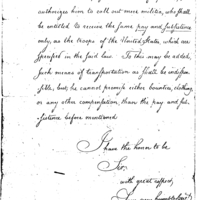 authorizes him to call out more militia, who shall
be entitled to receive the same pay and subsistence
only, as the troops of the United States, which are
specified in the said law. To this may be added,
such means of transportation as shall be indispen-
sible, but, he cannot promise either bounties, clothing,
or any other compensation, than the pay and sub-
sistence before mentioned
I have the honor to be
Sir,
with great respect,